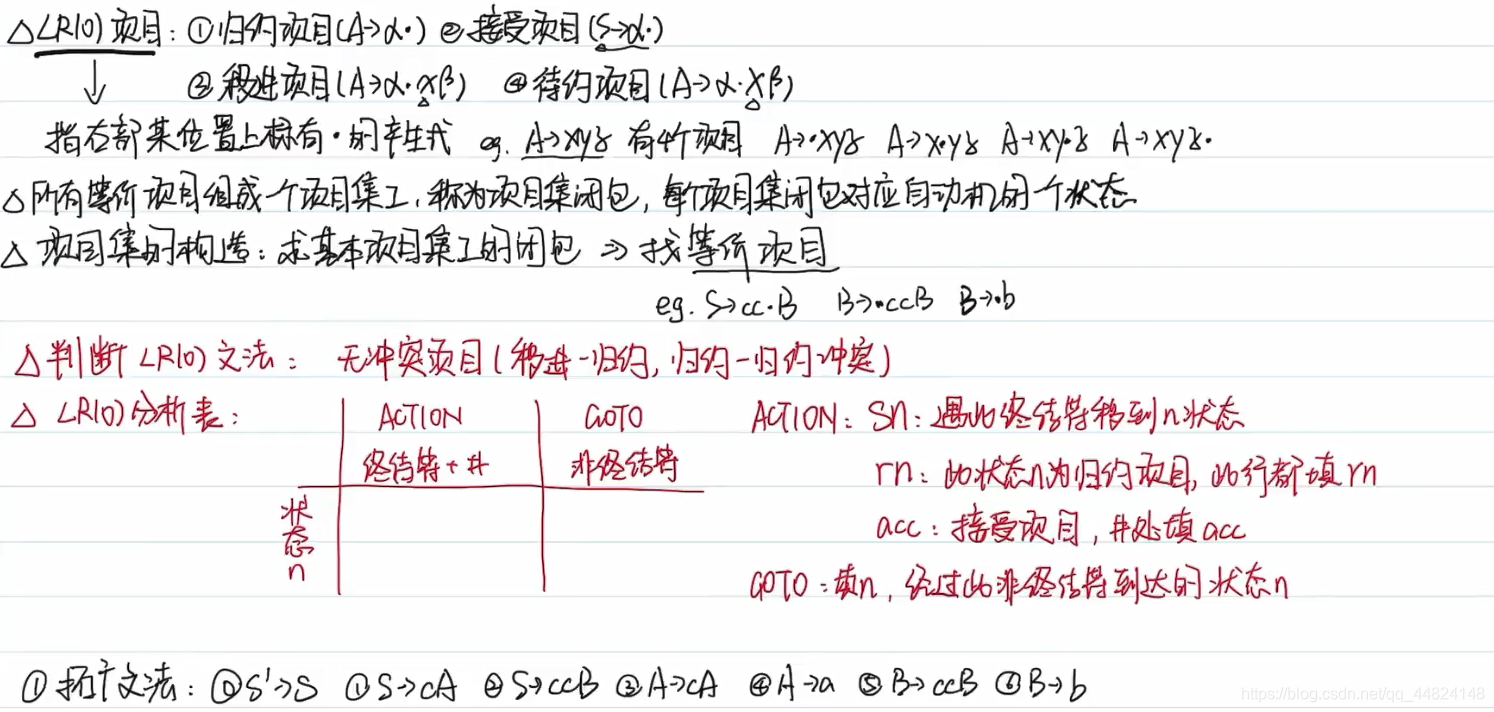 △LR(0)项目：①归约项目(A→α·) ②接受项目(S→α·)
③移进项目(A→α·xβ) ④待约项目(A→α·Xβ)
↓
指右部某位置上标有·的产生式 eg. A→xyz 有4个项目 A→·xyz A→x·yz A→xy·z A→xyz·
△所有等价项目组成一个项目集I，称为项目集闭包，每个项目集闭包对应自动机的一个状态
△项目集的构造：求基本项目集I的闭包 ⇒ 找等价项目
eg. S→cc·B B→·ccB B→·b
△判断LR(0)文法： 无冲突项目(移进-归约，归约-归约冲突)
△LR(0)分析表：
ACTION GOTO
终结符+# 非终结符
状态n
ACTION：Sn：遇此终结符移到n状态
rn：此状态n为归约项目，此行都填rn
acc：接受项目，#处填acc
GOTO：填n，经过此非终结符到达的状态n
①拓广文法：⓪S'→S ①S→cA ②S→ccB ③A→cA ④A→a ⑤B→ccB ⑥B→b
https://blog.csdn.net/qq_44824148